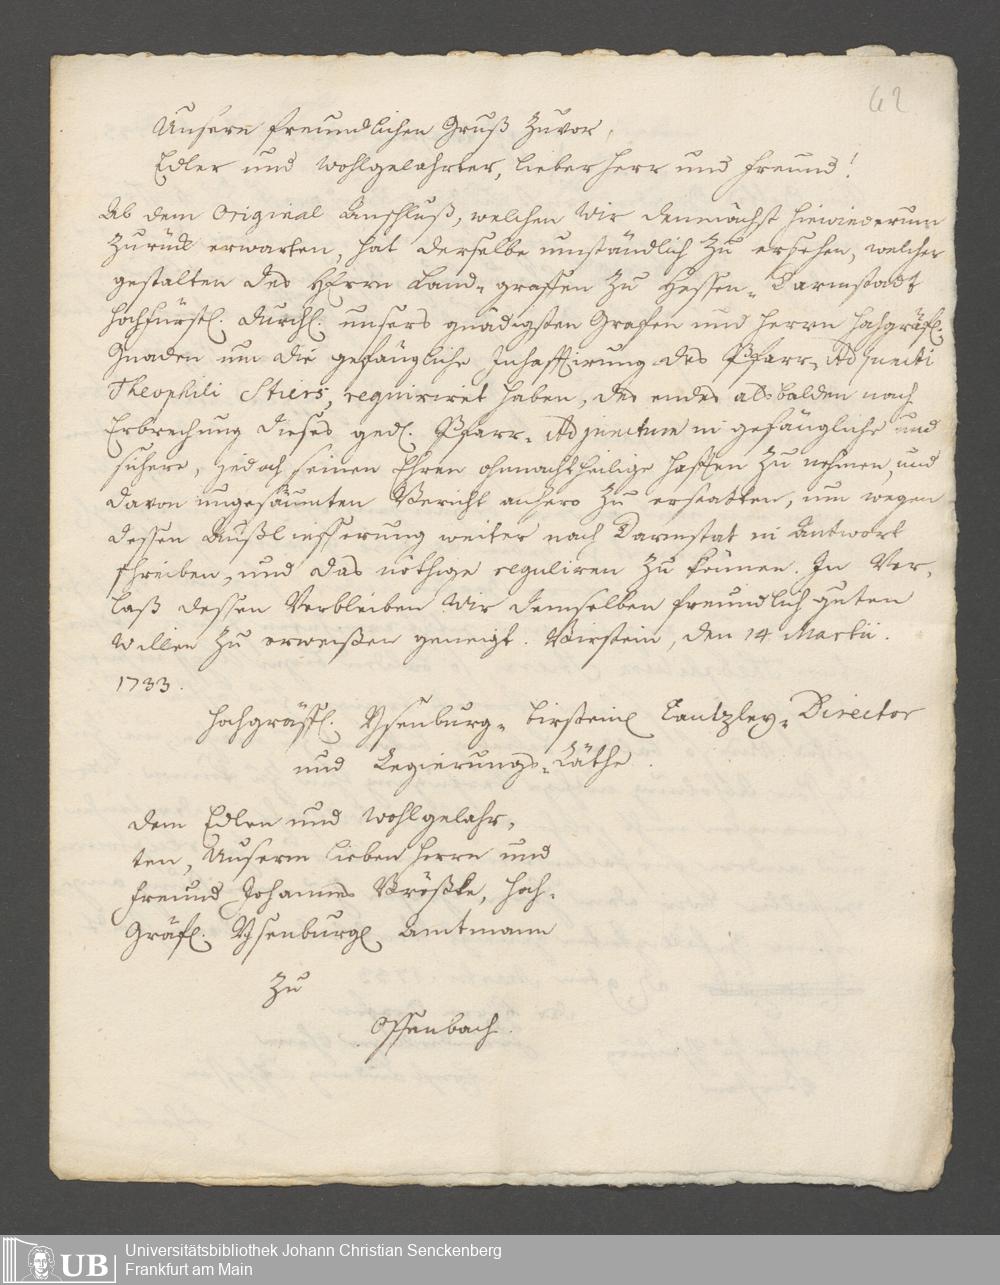 62
Unsern freundlichen Gruß Zuvor,
Edler und Wohlgelahrter, lieber Herr und Freund!
Ab dem Original Anschluß, welchen Wir demnächst hinwiederum
Zurück erwarten, hat derselbe umständlich Zu ersehen, welcher
gestalten des HErrn Land-graffen Zu Hessen-Darmstadt
Hochfürstl. Durchl. unsers gnädigsten Grafen und Herrn Hochgräfl.
Gnaden um die gefängliche Inhafftirung des Pfarr-Adjuncti
Theophili Stiers, requiriret haben, des endes alsbalden nach
Erbrechung dieses ged. Pfarr-Adjunctum in gefängliche und
sichere, jedoch seinen Ehren ohnnachtheilige Hafften Zu nehmen, und
davon ungesäumten Bericht anhero Zu erstatten, um wegen
dessen Außliefferung weiter nach Darmstat in Antwort
schreiben, und das nöthige reguliren Zu können. In Ver-
laß dessen Verbleiben Wir demselben freundlich guten
Willen Zu erweißen geneigt. Birstein, den 14 Martii.
1733.
Hochgräffl. Ysenburg-Birsteinl Cantzley-Director
und Regierungs-Räthe.
Dem Edlen und Wohlgelahr-
ten, Unserm lieben Herrn und
Freund Johannes Brößke, Hoch-
Gräfl. Ysenburgl Amtmann
Zu
Offenbach.
UB
Universitätsbibliothek Johann Christian Senckenberg
Frankfurt am Main